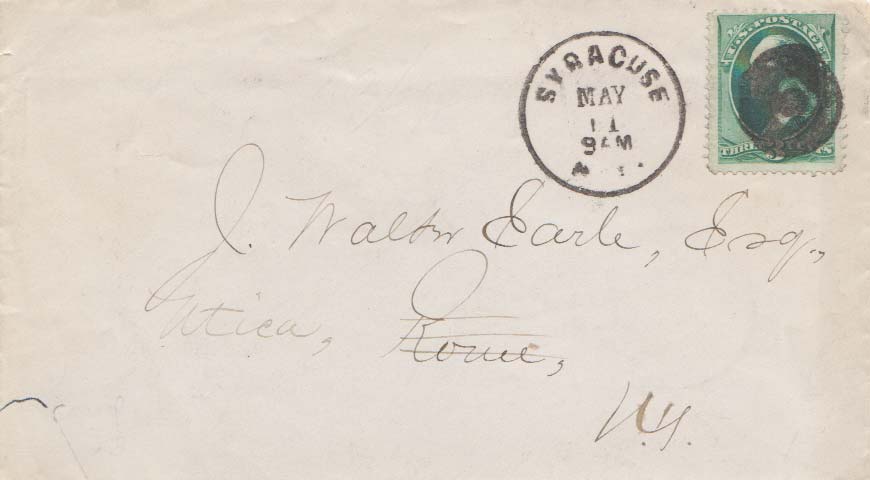 U.S. POSTAGE
THREE CENTS
SYRACUSE
MAY
11
9AM
N.Y.
J. Walter Earle, Esq.,
Utica, Rome,
N.Y.